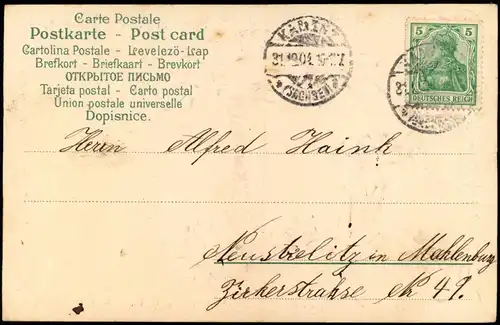 Carte Postale
Postkarte - Post card
Cartolina Postale - Levelező-Lap
Brefkort - Briefkaart - Brevkort
ОТКРЫТОЕ ПИСЬМО
Tarjeta postal - Carto postal
Union postale universelle
Dopisnice.
KAMENZ
31.12.04.
(SACHSEN)
5 5
DEUTSCHES REICH
Herrn Alfred Hainh
Neustrelitz in Mahlenburg
Zirkerstrahse No 49.